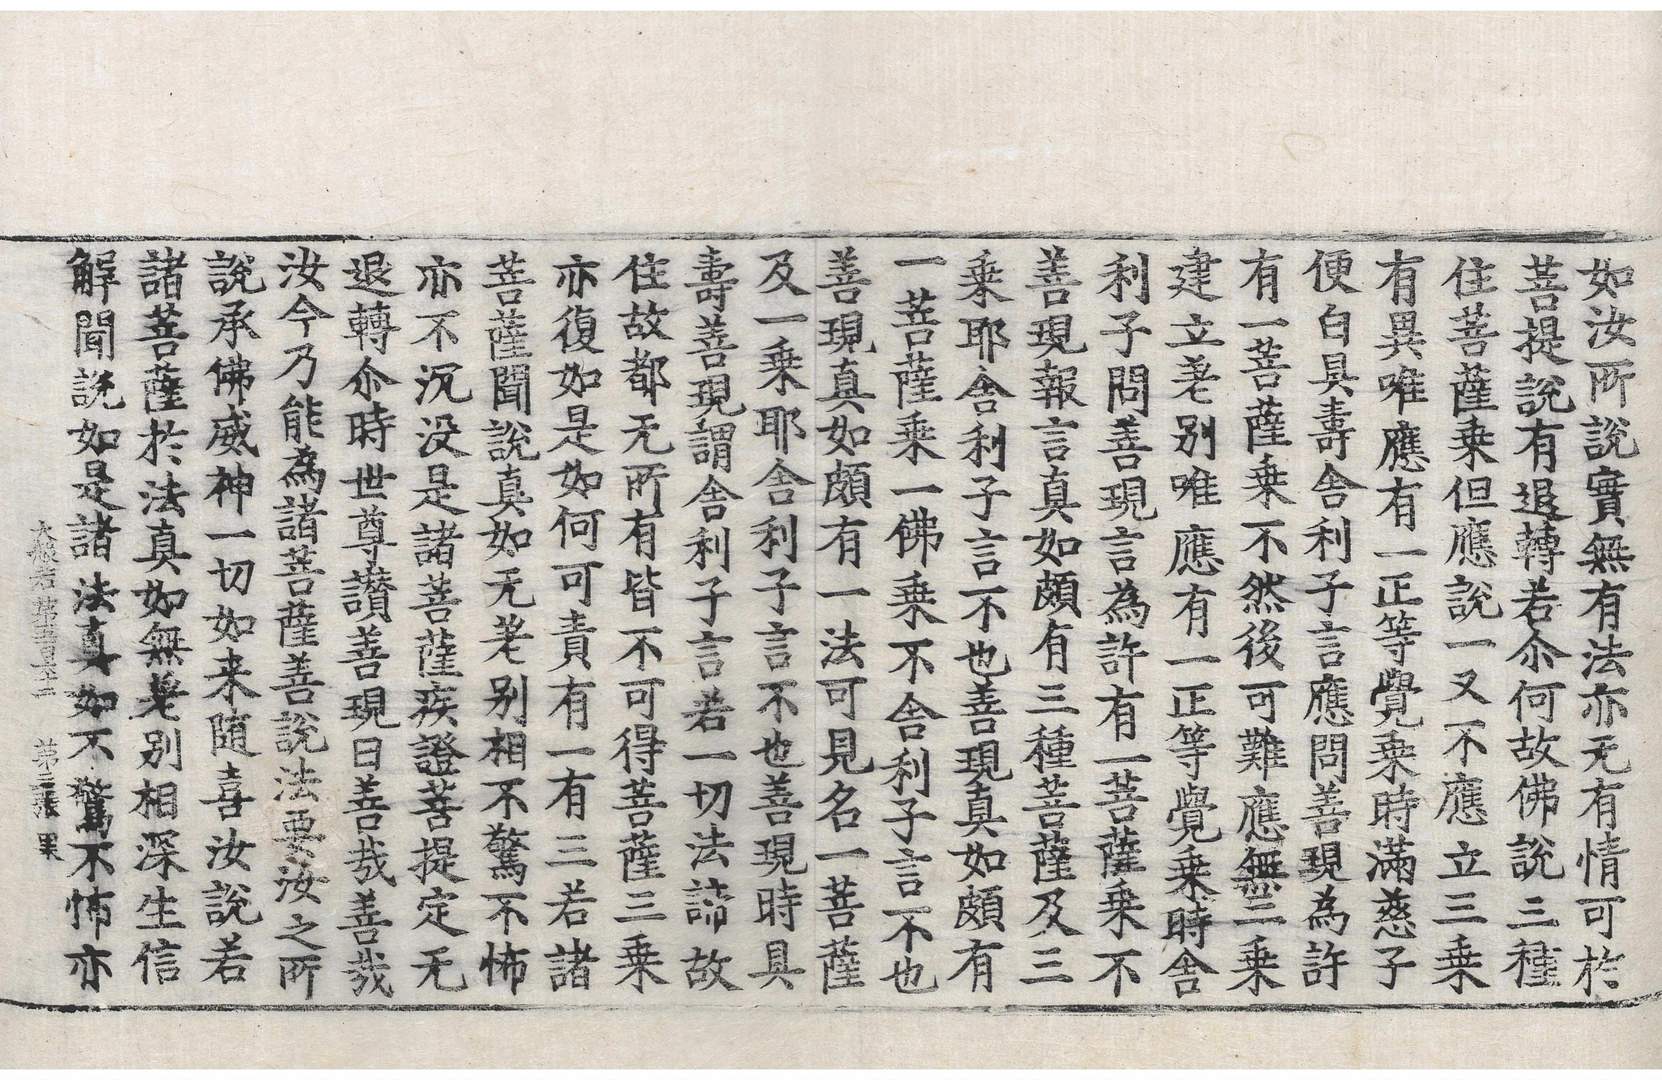 如汝所說實無有法亦无有情可於
菩提說有退轉若尒何故佛說三種
住菩薩乗但應說一又不應立三乗
有異唯應有一正等覺乗時滿慈子
便白具壽舍利子言應問善現為許
有一菩薩乗不然後可難應無三乗
建立差別唯應有一正等覺乗時舍
利子問善現言為許有一菩薩乗不
善現報言真如頗有三種菩薩及三
乗耶舍利子言不也善現真如頗有
一菩薩乗一佛乗不舍利子言不也
善現真如頗有一法可見名一菩薩
及一乗耶舍利子言不也善現時具
壽善現謂舍利子言若一切法諦故
住故都无所有皆不可得菩薩三乗
亦復如是如何可責有一有三若諸
菩薩聞說真如无差別相不驚不怖
亦不沉没是諸菩薩疾證菩提定无
退轉尒時世尊讃善現曰善哉善哉
汝今乃能為諸菩薩善說法要汝之所
說承佛威神一切如来随喜汝說若
諸菩薩於法真如無差別相深生信
解聞說如是諸法真如不驚不怖亦
大般若第五百六十二 第三張 果